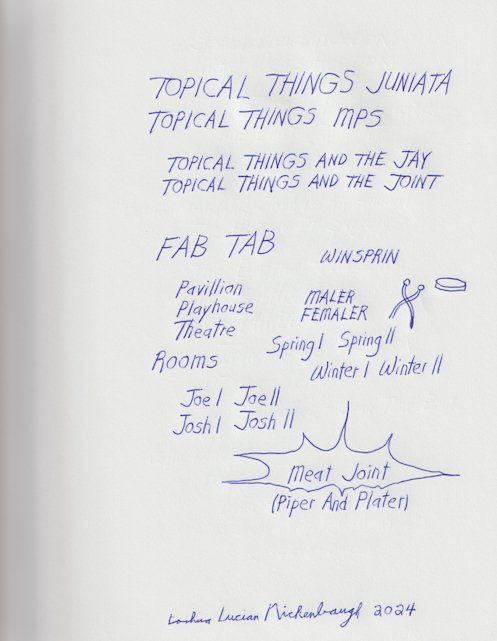 TOPICAL THINGS JUNIATA
TOPICAL THINGS MPS
TOPICAL THINGS AND THE JAY
TOPICAL THINGS AND THE JOINT
FAB TAB
WINSPRIN
Pavillion
Playhouse
Theatre
MALER
FEMALER
Spring I Spring II
Winter I Winter II
ROOMS
Joe I Joe II
Josh I Josh II
Meat Joint
(Piper And Plater)
Joshua Lucian Nichenbaugh 2024